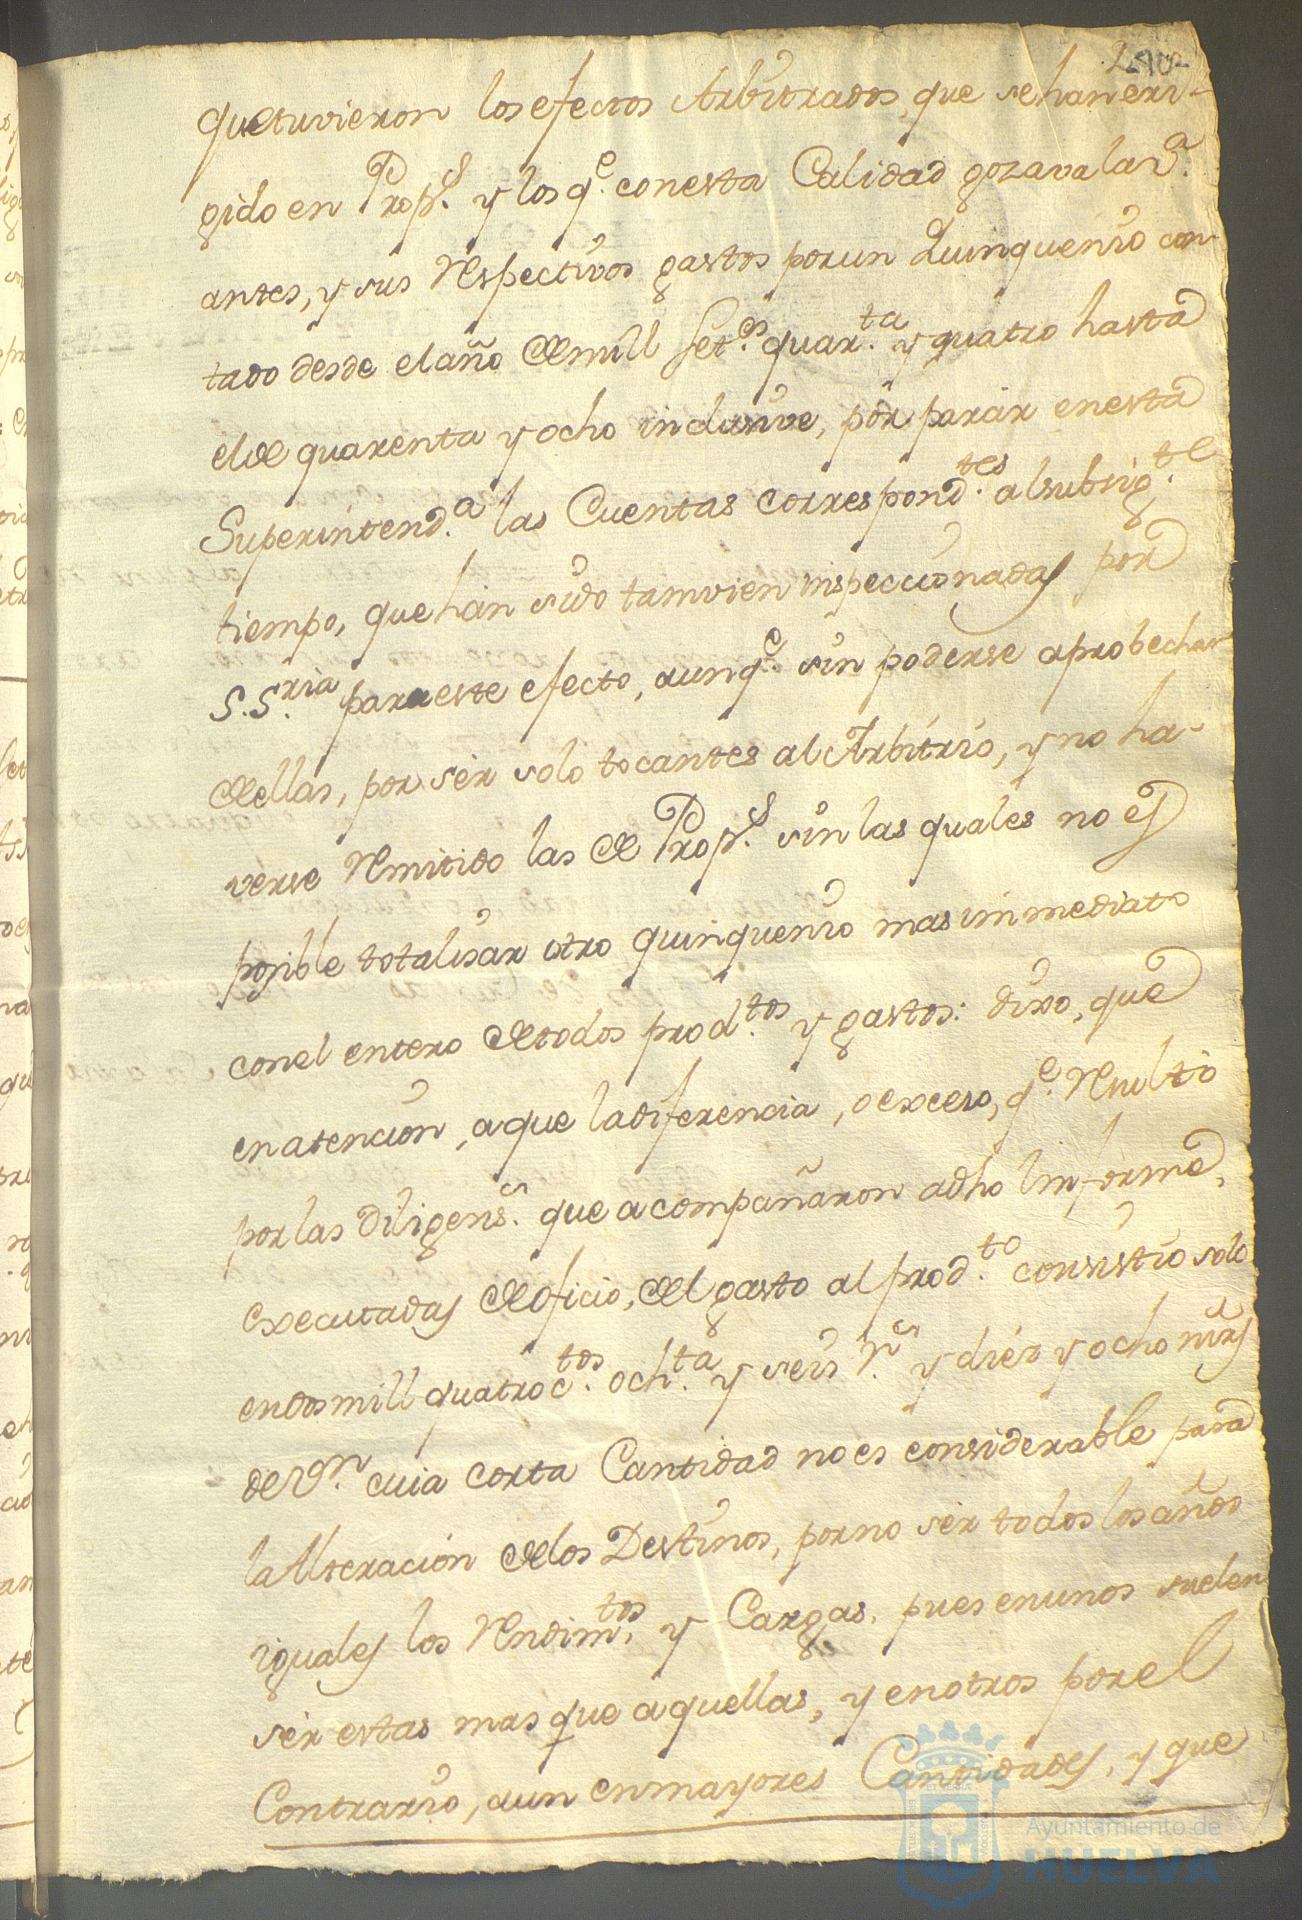 que tuvieron los efectos Arbitrados, que se han eri-
gido en Prop.s y los q.e con esta Calidad gozava la V.a
antes, y sus respectivos gastos por un Quinquenio con-
tado desde el año de mill set.os quar.ta y quatro hasta
el de quarenta y ocho inclusive, por parar en esta
Superintend.a las Cuentas correspond.tes al subsig.te
tiempo, que han sido tamvien inspeccionadas por
S.S.ria para este efecto, aunq.e sin poderse aprobechar
de ellas, por ser solo tocantes al Arbitrio, y no ha-
verse remitido las de Prop.s sin las quales no es
posible totalisar otro quinquenio mas inmediato
con el entero de todos prod.tos y gastos: dixo, que
en atencion, a que la diferencia, o exceso, q.e resultó
por las diligens.s que acompañaron a dho Informe,
executadas de oficio, del gasto al prod.to consistio solo
en dos mill quatroc.tos och.ta y seis r.s y diez y ocho mrs
de v.n cuia corta Cantidad no es considerable para
la Alteracion de los Destinos, por no ser todos los años
iguales los rendim.tos y Cargas, pues en unos suelen
ser estas mas que aquellas, y en otros por el
Contrario, aun en mayores Cantidades, y que
Ayuntamiento de
HUELVA